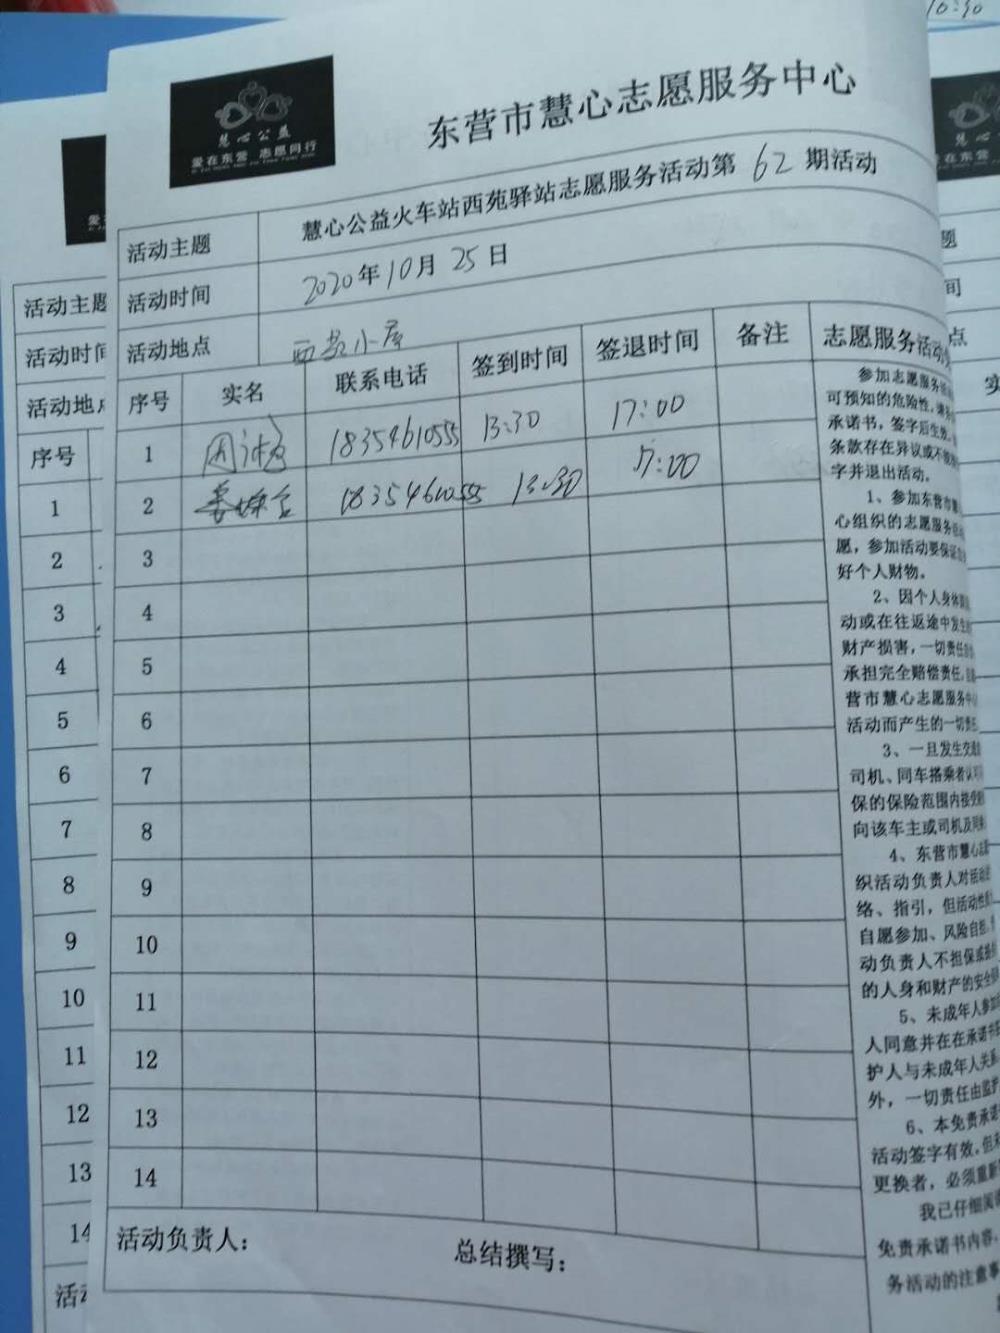 10:30
慧心公益
爱在东营 志愿同行
东营市慧心志愿服务中心
活动主题 慧心公益火车站西苑驿站志愿服务活动第62期活动
活动时间 2020年10月25日
活动地点 西苑小屋
序号 实名 联系电话 签到时间 签退时间 备注
1 18354610555 13:30 17:00
2 18354610555 13:30 17:00
3
4
5
6
7
8
9
10
11
12
13
14
活动负责人： 总结撰写：
志愿服务活动
参加志愿服务
可预知的危险性，
承诺书，签字后生效。
条款存在异议或不
字并退出活动。
1、参加东营市慧
心组织的志愿服务
愿，参加活动要保证
好个人财物。
2、因个人身体
动或在往返途中发生
财产损害，一切责任
承担完全赔偿责任，
营市慧心志愿服务中
活动而产生的一切责任
3、一旦发生交通
司机、同车搭乘者认可
保的保险范围内接受
向该车主或司机及
4、东营市慧心志
织活动负责人对活动
络、指引，但活动
自愿参加、风险自担，
动负责人不担保或
的人身和财产的安全
5、未成年人参加
人同意并在在承诺书
护人与未成年人关系
外，一切责任由监护
6、本免责承诺
活动签字有效，但
更换者，必须重新
我已仔细阅读
免责承诺书内容，
务活动的注意事
活动主题
活动时间
活动地点
序号
1
2
3
4
5
6
7
8
9
10
11
12
13
14
活动
慧心公益
爱在东营 志愿同行
题
间
点
实